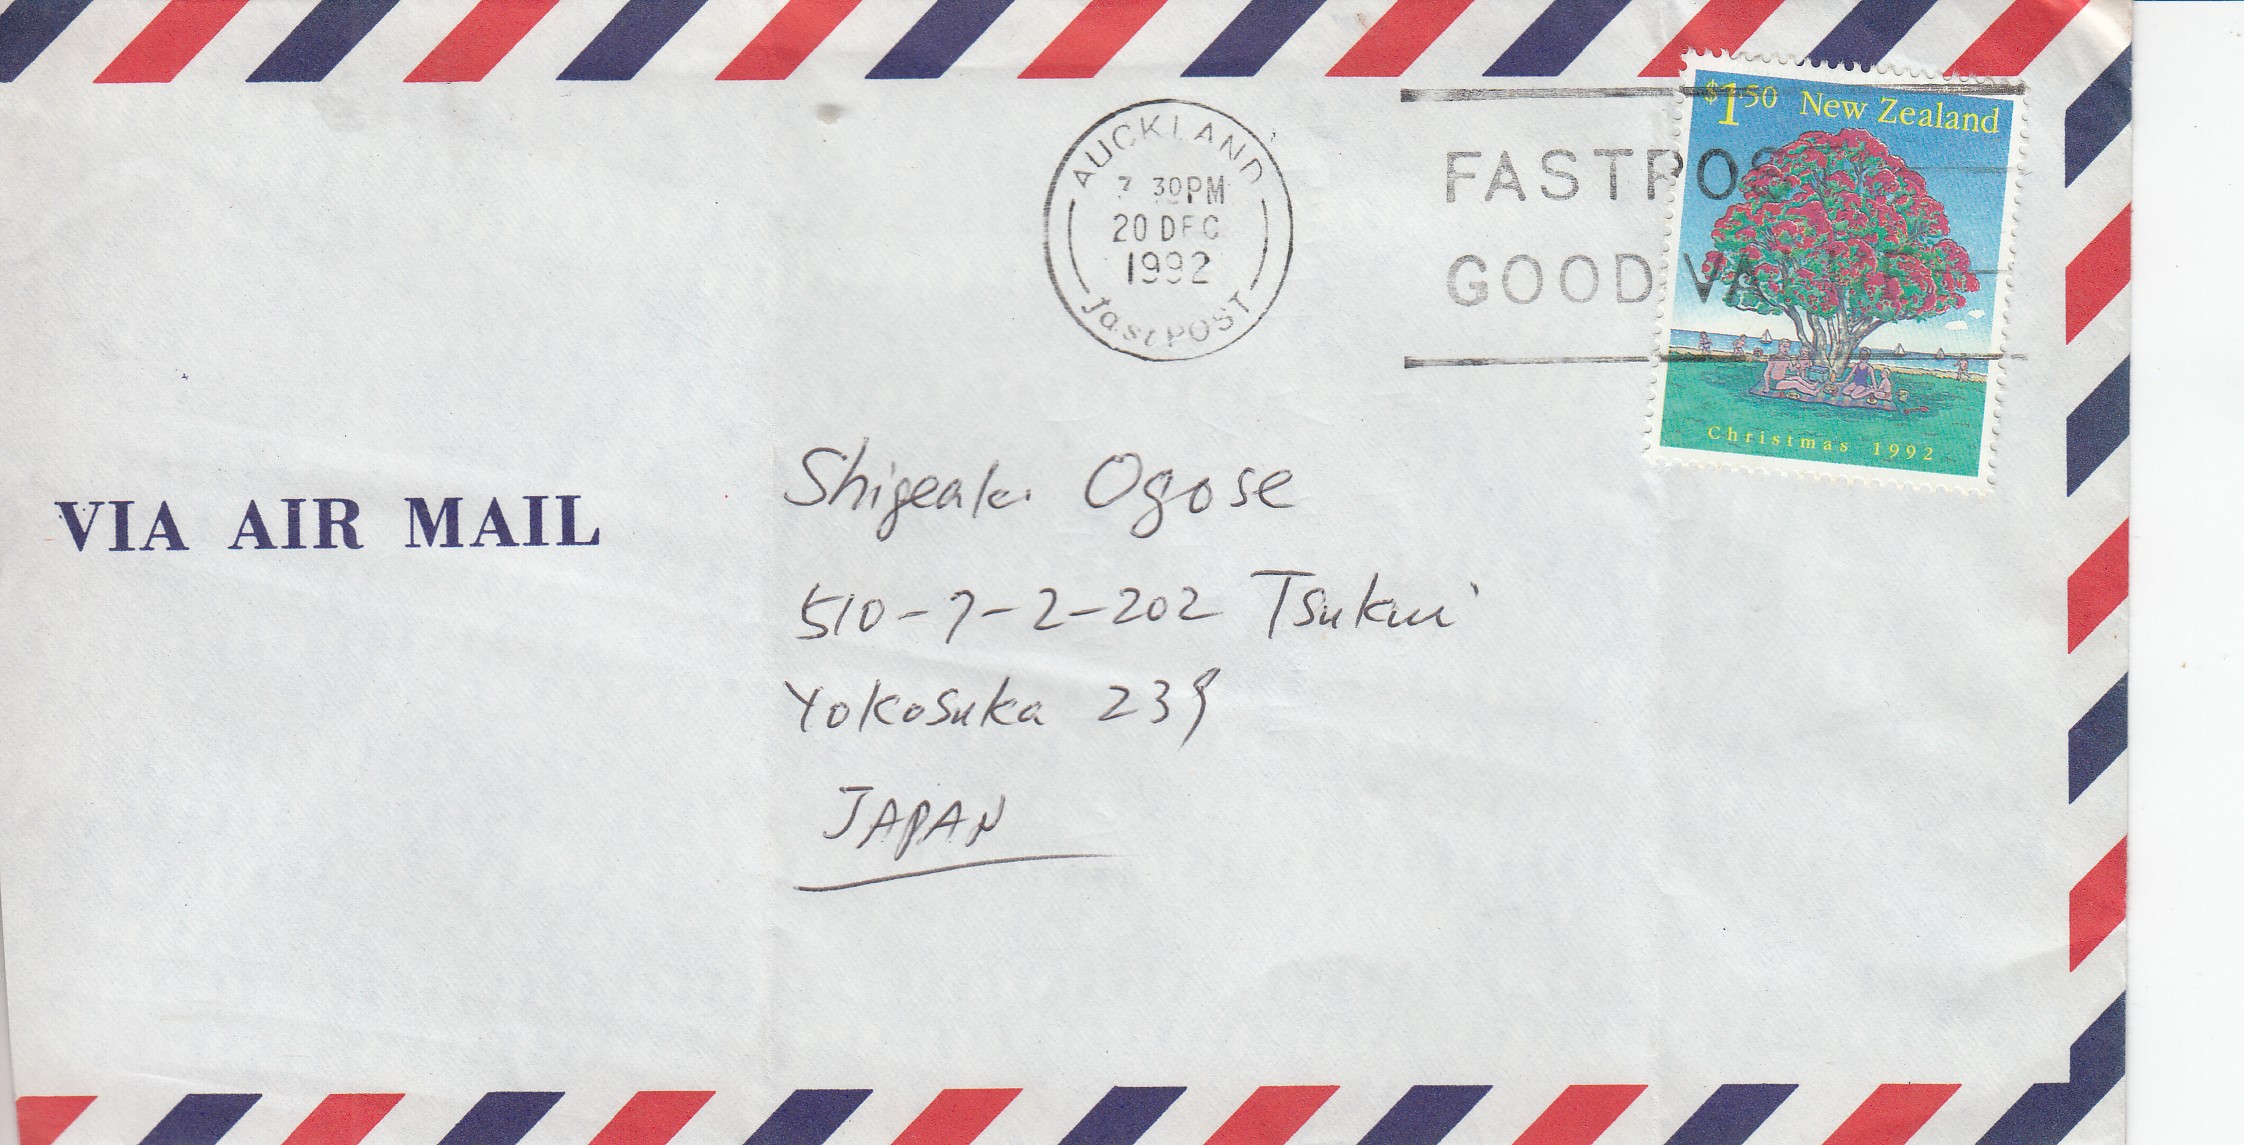 AUCKLAND
7 30PM
20 DEC
1992
fastPOST
FASTPOS
GOOD VALUE
$1.50 New Zealand
Christmas 1992
VIA AIR MAIL
Shigeaki Ogose
510-7-2-202 Tsukui
Yokosuka 239
JAPAN